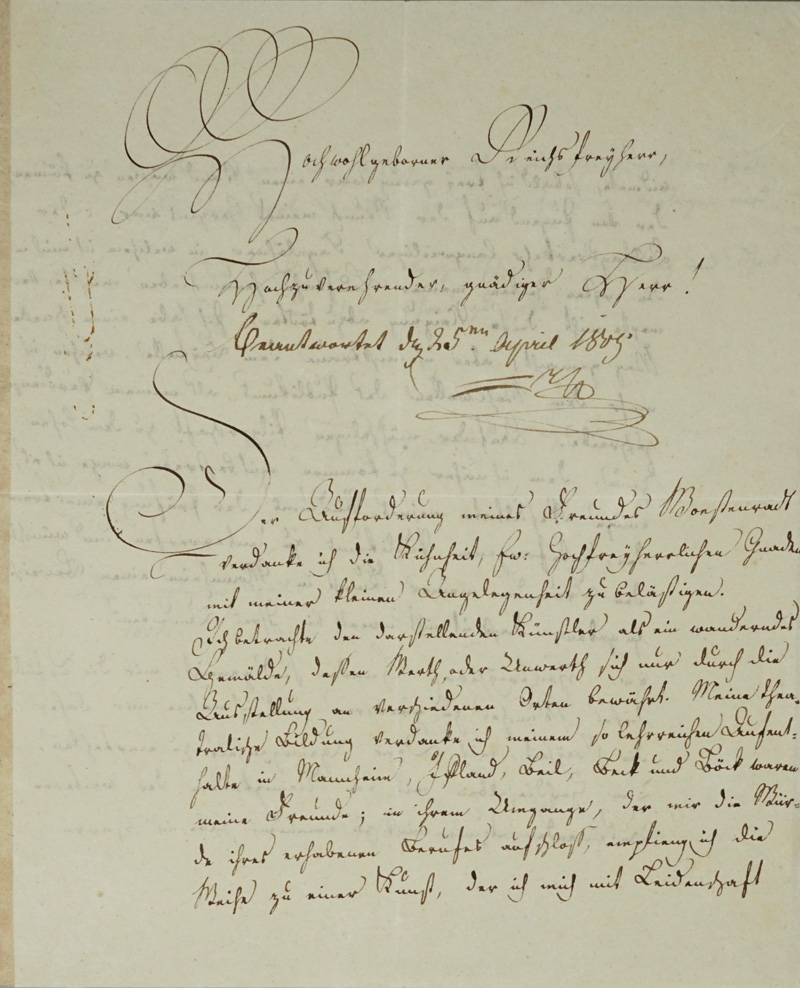 Hochwohlgeborner Reichsfreyherr,
Hochzuverehrender, gnädiger Herr!
Beantwortet d. 25ten April 1805
Der Aufforderung meines Freundes
verdanke ich die Kühnheit, Ew: Hochfreyherrlichen Gnaden
mit meiner kleinen Angelegenheit zu belästigen.
Ich betrachte den darstellenden Künstler als ein wanderndes
Gemälde, deßen Werth oder Unwerth sich nur durch die
Ausstellung an verschiedenen Orten bewährt. Meine thea-
tralische Bildung verdanke ich meinem so lehrreichen Aufent-
halte in Mannheim, Iffland, Beil, Beck und Böck waren
meine Freunde; in ihrem Umgange, der mir die Wür-
de ihres erhabenen Berufes aufschloß, empfieng ich die
Weihe zu einer Kunst, der ich mich mit Leidenschaft